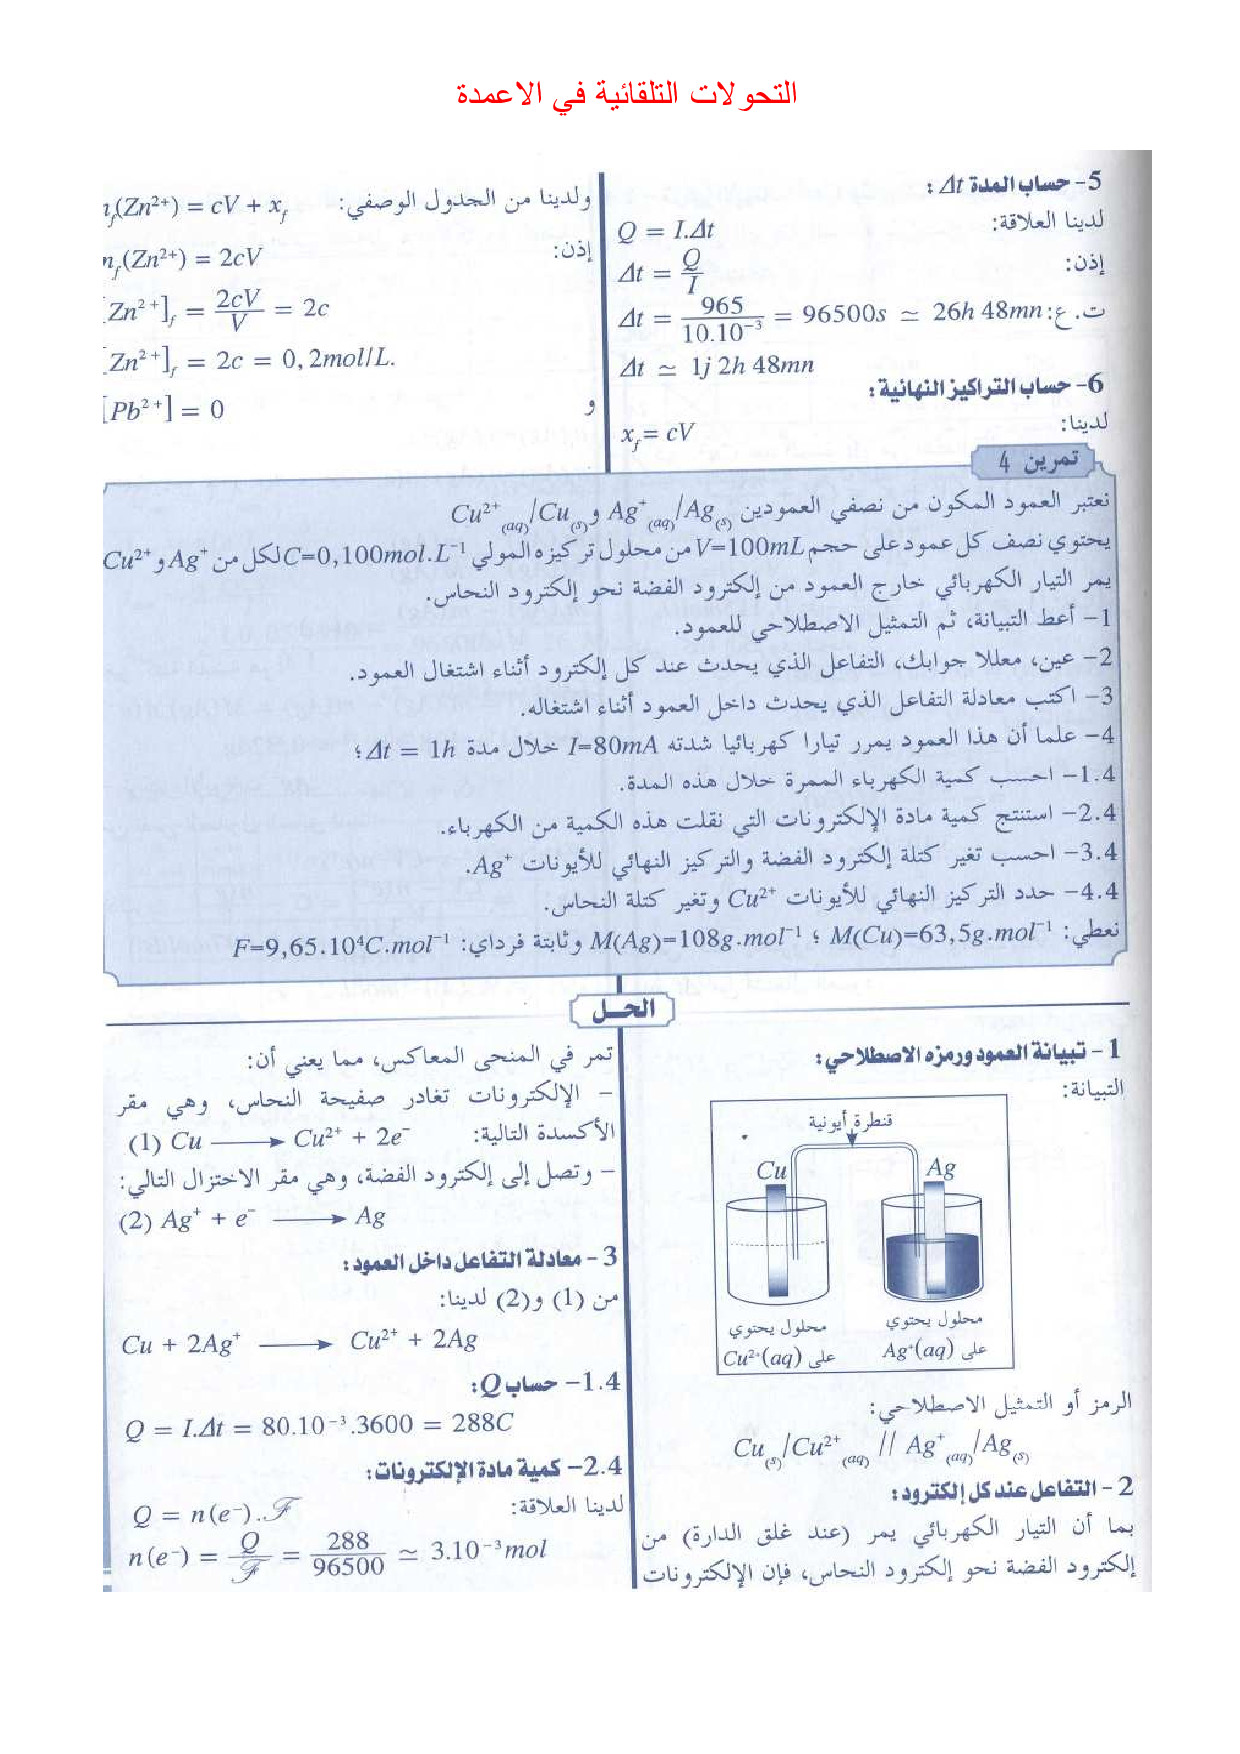 التحولات التلقائية في الاعمدة
5- حساب المدة Δt :
لدينا العلاقة: Q = I.Δt
إذن: Δt = Q/I
ت.ع: Δt = 965/10.10⁻³ = 96500s ≃ 26h 48mn
Δt ≃ 1j 2h 48mn
6- حساب التراكيز النهائية:
لدينا: x_f = cV
ولدينا من الجدول الوصفي: n_f(Zn²⁺) = cV + x_f
إذن: n_f(Zn²⁺) = 2cV
[Zn²⁺]_f = 2cV/V = 2c
[Zn²⁺]_f = 2c = 0,2mol/L.
و [Pb²⁺] = 0
تمرين 4
نعتبر العمود المكون من نصفي العمودين Ag⁺(aq)/Ag(s) و Cu²⁺(aq)/Cu(s)
يحتوي نصف كل عمود على حجم V=100mL من محلول تركيزه المولي C=0,100mol.L⁻¹ لكل من Ag⁺ و Cu²⁺
يمر التيار الكهربائي خارج العمود من إلكترود الفضة نحو إلكترود النحاس.
1- أعط التبيانة، ثم التمثيل الاصطلاحي للعمود.
2- عين، معللا جوابك، التفاعل الذي يحدث عند كل إلكترود أثناء اشتغال العمود.
3- اكتب معادلة التفاعل الذي يحدث داخل العمود أثناء اشتغاله.
4- علما أن هذا العمود يمرر تيارا كهربائيا شدته I=80mA خلال مدة Δt = 1h ؛
1.4- احسب كمية الكهرباء الممررة خلال هذه المدة.
2.4- استنتج كمية مادة الإلكترونات التي نقلت هذه الكمية من الكهرباء.
3.4- احسب تغير كتلة إلكترود الفضة والتركيز النهائي للأيونات Ag⁺.
4.4- حدد التركيز النهائي للأيونات Cu²⁺ وتغير كتلة النحاس.
نعطي: M(Cu)=63,5g.mol⁻¹ ؛ M(Ag)=108g.mol⁻¹ وثابتة فرداي: F=9,65.10⁴C.mol⁻¹
الحل
1- تبيانة العمود ورمزه الاصطلاحي:
التبيانة:
قنطرة أيونية
Cu
Ag
محلول يحتوي
على Cu²⁺(aq)
محلول يحتوي
على Ag⁺(aq)
الرمز أو التمثيل الاصطلاحي:
Cu(s)/Cu²⁺(aq) // Ag⁺(aq)/Ag(s)
2- التفاعل عند كل إلكترود:
بما أن التيار الكهربائي يمر (عند غلق الدارة) من
إلكترود الفضة نحو إلكترود النحاس، فإن الإلكترونات
تمر في المنحى المعاكس، مما يعني أن:
- الإلكترونات تغادر صفيحة النحاس، وهي مقر
الأكسدة التالية: (1) Cu ⟶ Cu²⁺ + 2e⁻
- وتصل إلى إلكترود الفضة، وهي مقر الاختزال التالي:
(2) Ag⁺ + e⁻ ⟶ Ag
3- معادلة التفاعل داخل العمود:
من (1) و(2) لدينا:
Cu + 2Ag⁺ ⟶ Cu²⁺ + 2Ag
1.4- حساب Q:
Q = I.Δt = 80.10⁻³.3600 = 288C
2.4- كمية مادة الإلكترونات:
لدينا العلاقة: Q = n(e⁻).ℱ
n(e⁻) = Q/ℱ = 288/96500 ≃ 3.10⁻³mol